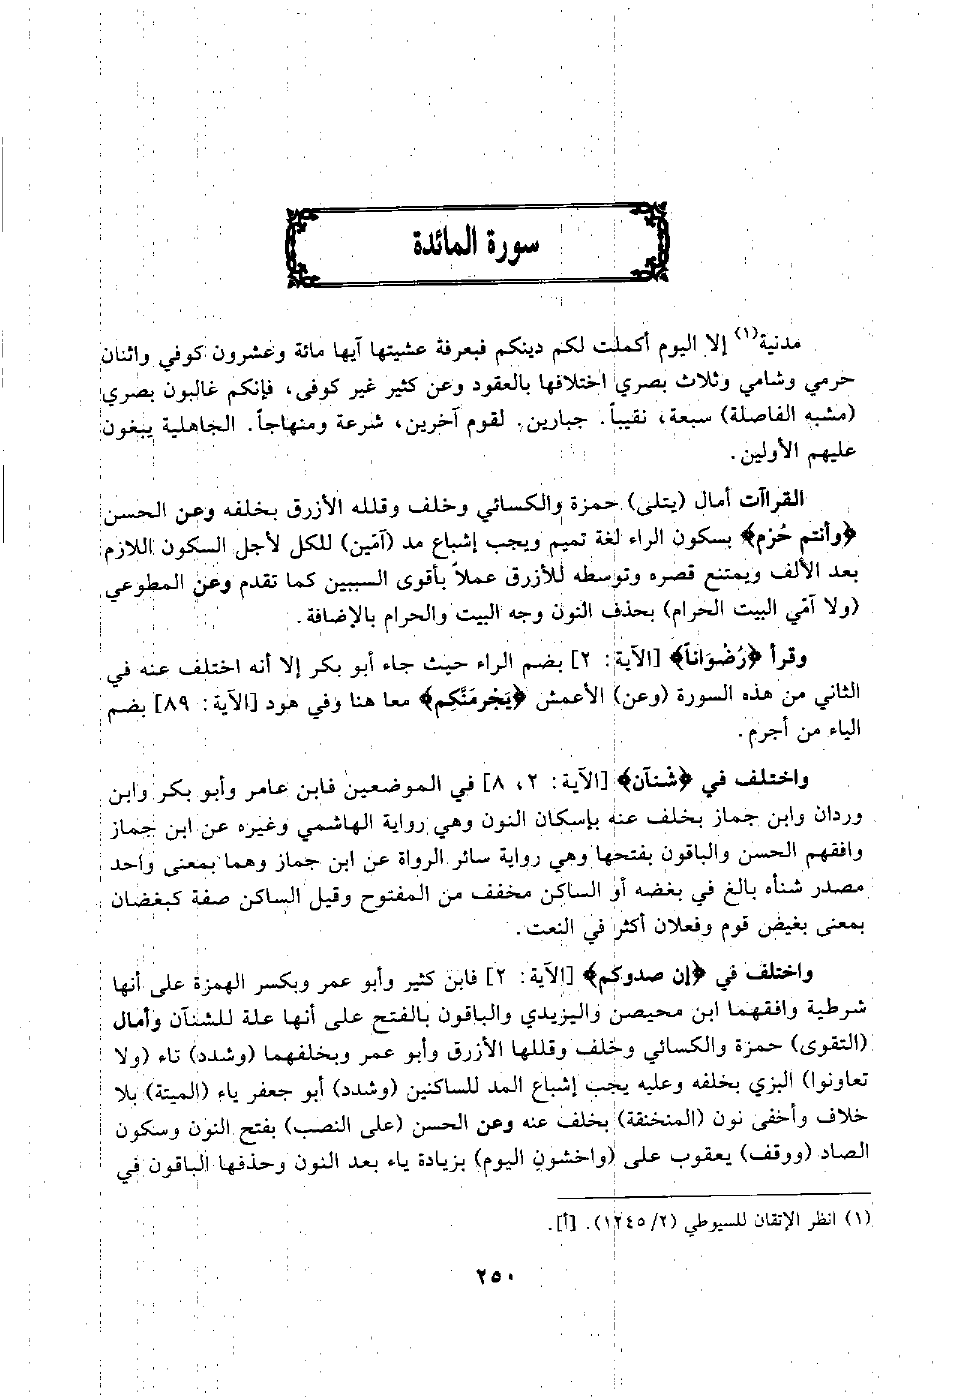 سورة المائدة
مدنية(١) إلا اليوم أكملت لكم دينكم فبعرفة عشيتها آيها مائة وعشرون كوفي واثنان
حرمي وشامي وثلاث بصري اختلافها بالعقود وعن كثير غير كوفى، فإنكم غالبون بصري
(مشبه الفاصلة) سبعة، نقيباً. جبارين. لقوم آخرين، شرعة ومنهاجاً. الجاهلية يبغون
عليهم الأولين.
القراآت أمال (يتلى) حمزة والكسائي وخلف وقلله الأزرق بخلفه وعن الحسن
﴿وأنتم حُرْم﴾ بسكون الراء لغة تميم ويجب إشباع مد (آمّين) للكل لأجل السكون اللازم
بعد الألف ويمتنع قصره وتوسطه للأزرق عملاً بأقوى السببين كما تقدم وعن المطوعي
(ولا آمّي البيت الحرام) بحذف النون وجه البيت والحرام بالإضافة.
وقرأ ﴿رُضْوَاناً﴾ [الآية: ٢] بضم الراء حيث جاء أبو بكر إلا أنه اختلف عنه في
الثاني من هذه السورة (وعن) الأعمش ﴿يَجْرِمَنَّكم﴾ معا هنا وفي هود [الآية: ٨٩] بضم
الياء من أجرم.
واختلف في ﴿شْنآن﴾ [الآية: ٢، ٨] في الموضعين فابن عامر وأبو بكر وابن
وردان وابن جماز بخلف عنه بإسكان النون وهي رواية الهاشمي وغيره عن ابن جماز
وافقهم الحسن والباقون بفتحها وهي رواية سائر الرواة عن ابن جماز وهما بمعنى واحد
مصدر شنأه بالغ في بغضه أو الساكن مخفف من المفتوح وقيل الساكن صفة كبغضان
بمعنى بغيض قوم وفعلان أكثر في النعت.
واختلف في ﴿إن صدوكم﴾ [الآية: ٢] فابن كثير وأبو عمر وبكسر الهمزة على أنها
شرطية وافقهما ابن محيصن واليزيدي والباقون بالفتح على أنها علة للشنآن وأمال
(التقوى) حمزة والكسائي وخلف وقللها الأزرق وأبو عمر وبخلفهما (وشدد) تاء (ولا
تعاونوا) البزي بخلفه وعليه يجب إشباع المد للساكنين (وشدد) أبو جعفر ياء (الميتة) بلا
خلاف وأخفى نون (المنخنقة) بخلف عنه وعن الحسن (على النصب) بفتح النون وسكون
الصاد (ووقف) يعقوب على (واخشون اليوم) بزيادة ياء بعد النون وحذفها الباقون في
(١) انظر الإتقان للسيوطي (١٢٤٥/٢). [أ].
٢٥٠